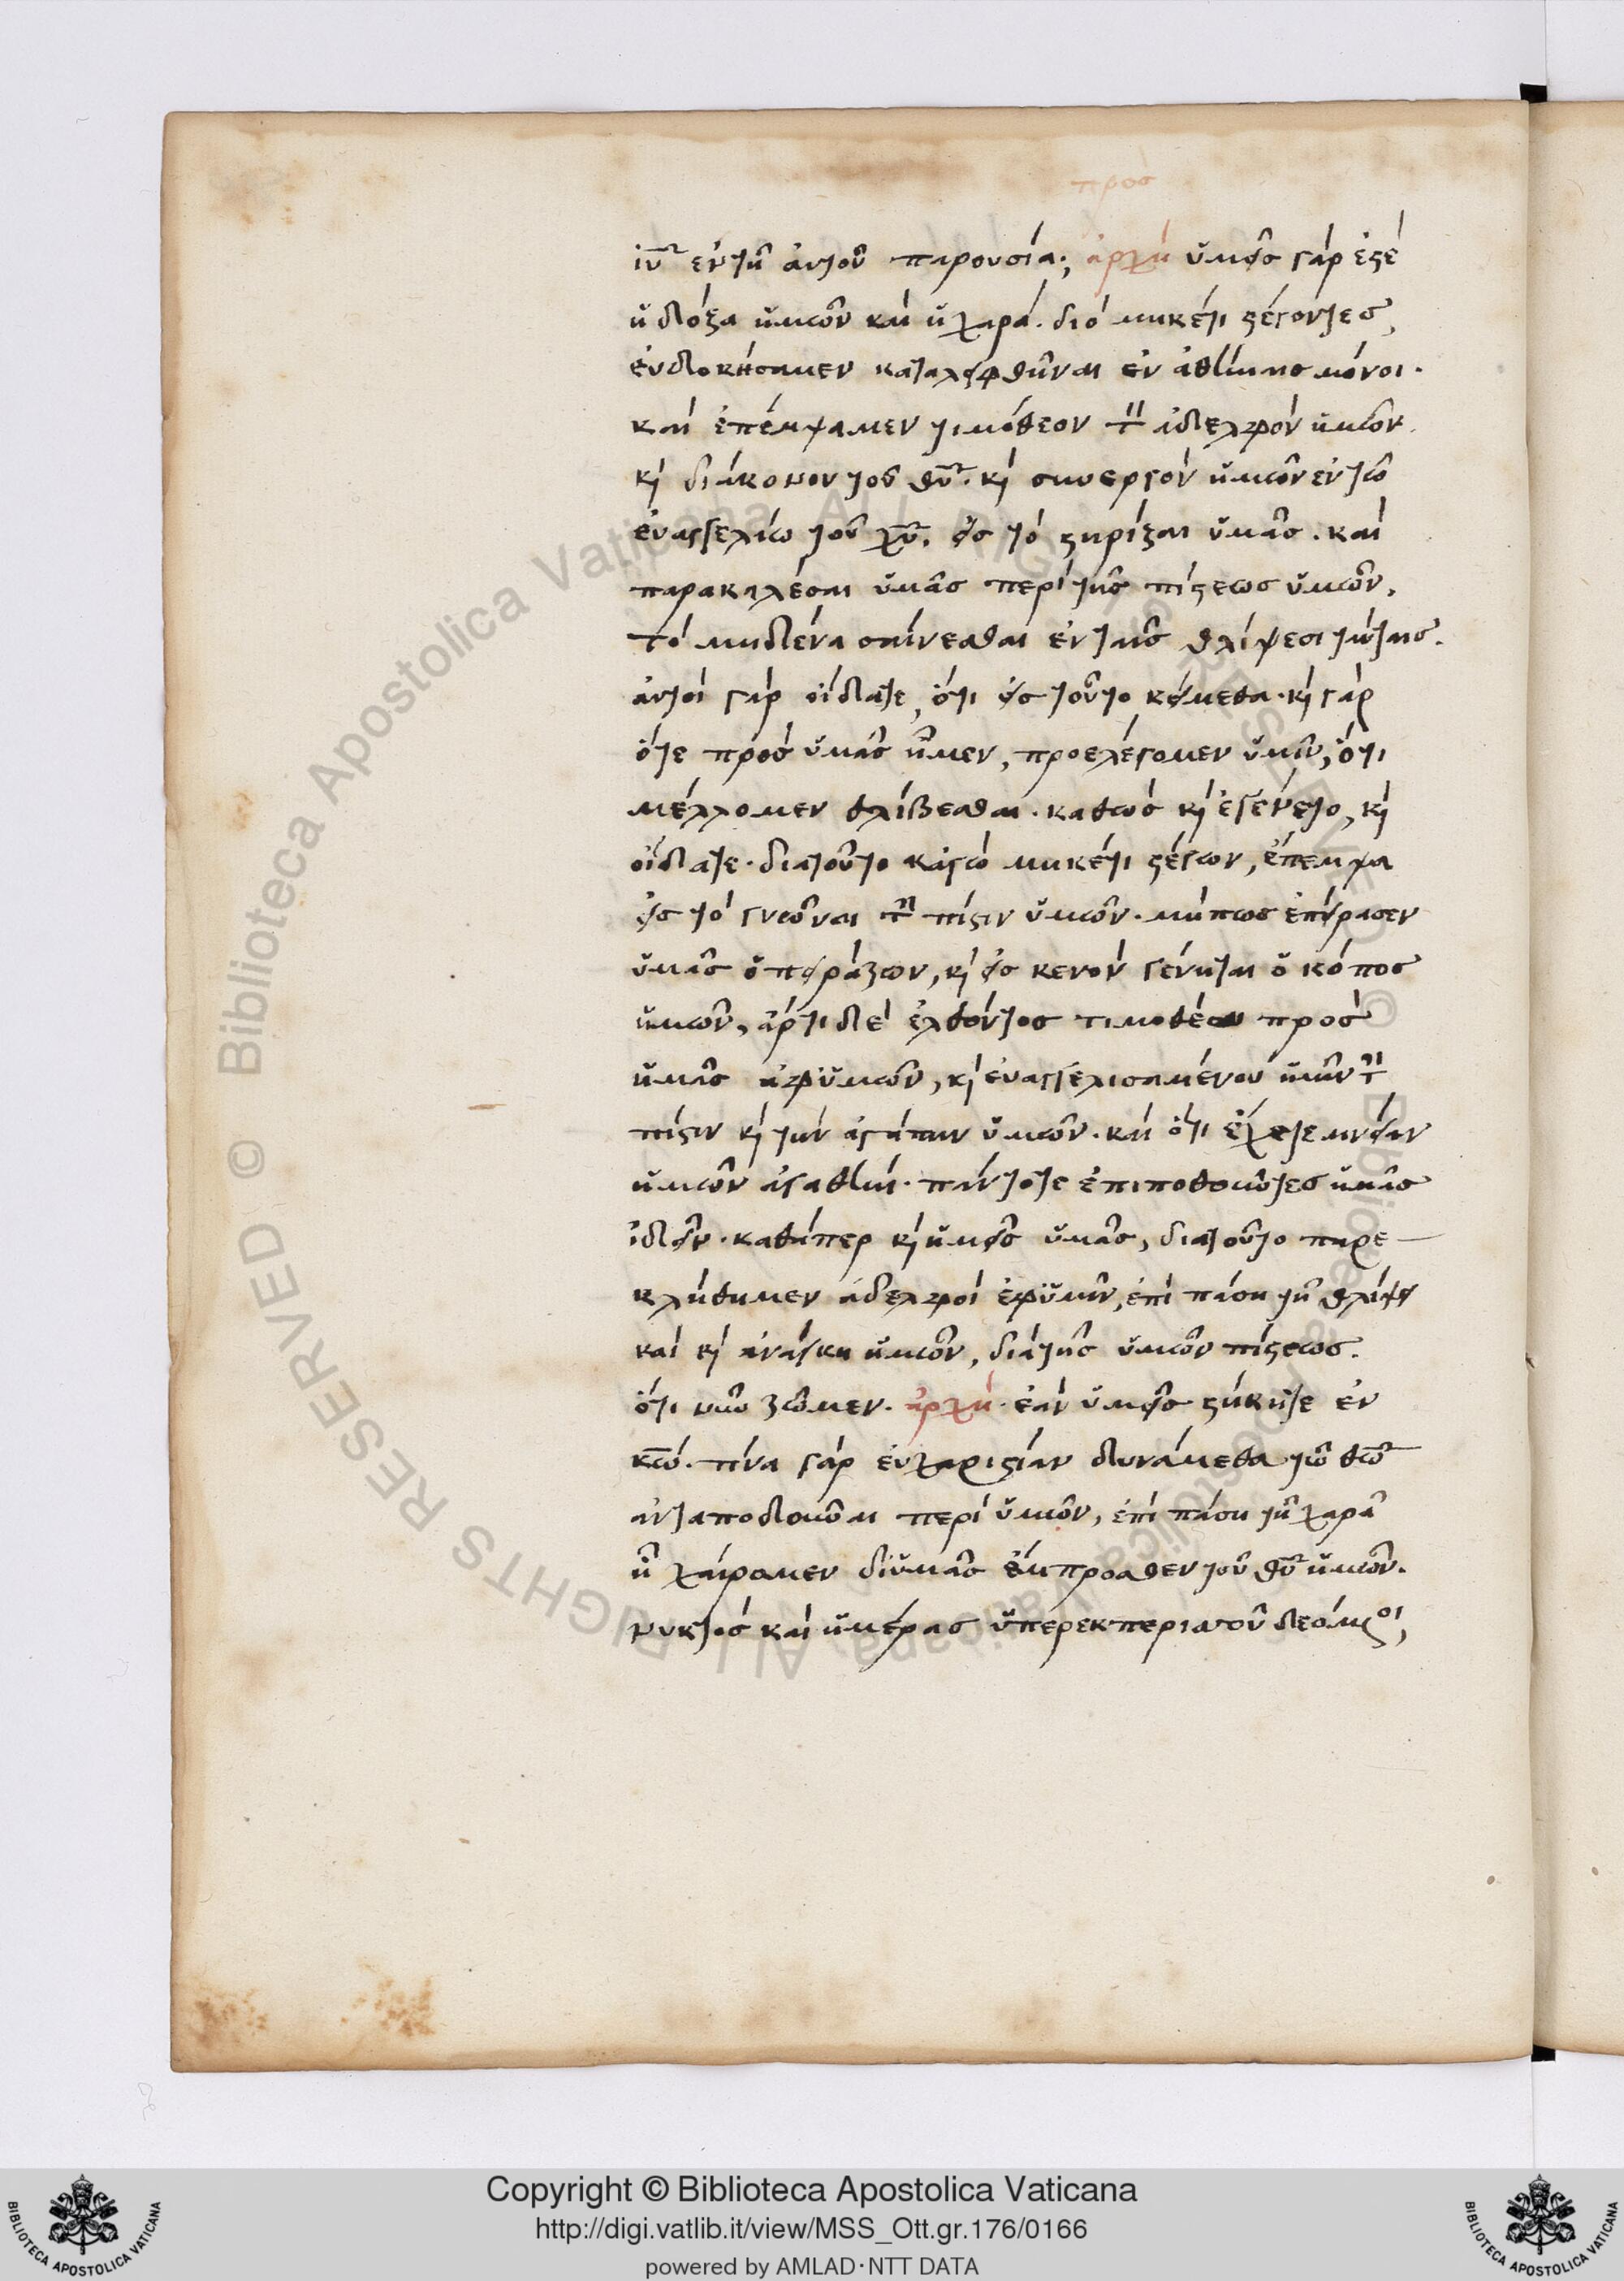 προσ
ιυ εν τη αυτου παρουσία; ἀρχὴ ὑμεῖς γάρ ἐστὲ
ἡ δόξα ἡμῶν καὶ ἡ χαρά. διὸ μηκέτι στέγοντες,
εὐδοκήσαμεν καταλειφθῆναι ἐν ἀθήναις μόνοι.
καὶ ἐπέμψαμεν τιμόθεον τὸν ἀδελφὸν ἡμῶν.
κ διάκονον τοῦ θυ. κ συνεργὸν ἡμῶν ἐν τῶ
εὐαγγελίω τοῦ χυ. εἰς τὸ στηρίξαι ὑμᾶς. καὶ
παρακαλέσαι ὑμᾶς περὶ τῆς πίστεως ὑμῶν,
τὸ μηδένα σαίνεσθαι ἐν ταῖς θλίψεσι ταύταις.
αὐτοὶ γὰρ οἴδατε, ὅτι εἰς τοῦτο κείμεθα. κ γὰρ
ὅτε πρὸς ὑμᾶς ἦμεν, προελέγομεν ὑμῖν, ὅτι
μέλλομεν θλίβεσθαι. καθὼς κ ἐγένετο, κ
οἴδατε. διατοῦτο κἀγὼ μηκέτι στέγων, ἔπεμψα
εἰς τὸ γνῶναι τὴν πίστιν ὑμῶν. μήπως ἐπείρασεν
ὑμᾶς ὁ πειράζων, κ εἰς κενὸν γένηται ὁ κόπος
ἡμῶν, ἄρτι δὲ ἐλθόντος τιμοθέου πρὸς
ἡμᾶς ἀφ ὑμῶν, κ εὐαγγελισαμένου ἡμῖν τὴν
πίστιν κ τὴν ἀγάπην ὑμῶν. καὶ ὅτι ἔχετε μνείαν
ἡμῶν ἀγαθὴν. πάντοτε ἐπιποθοῦντες ἡμᾶς
ἰδεῖν. καθάπερ κ ἡμεῖς ὑμᾶς, διατοῦτο παρε
κλήθημεν ἀδελφοὶ ἐφ ὑμῖν, ἐπὶ πάση τῆ θλίψει
καὶ κ ἀνάγκη ἡμῶν, διὰ τῆς ὑμῶν πίστεως.
ὅτι νῦν ζῶμεν. ἀρχὴ. ἐὰν ὑμεῖς στήκητε ἐν
κω. τίνα γὰρ εὐχαριστίαν δυνάμεθα τῶ θω
ἀνταποδοῦναι περὶ ὑμῶν, ἐπὶ πάση τῆ χαρᾶ
ἧ χαίρομεν δι ὑμᾶς ἔμπροσθεν τοῦ θυ ἡμῶν.
νυκτὸς καὶ ἡμέρας ὑπερεκπερισσοῦ δεόμενοι,
Copyright © Biblioteca Apostolica Vaticana
http://digi.vatlib.it/view/MSS_Ott.gr.176/0166
powered by AMLAD·NTT DATA